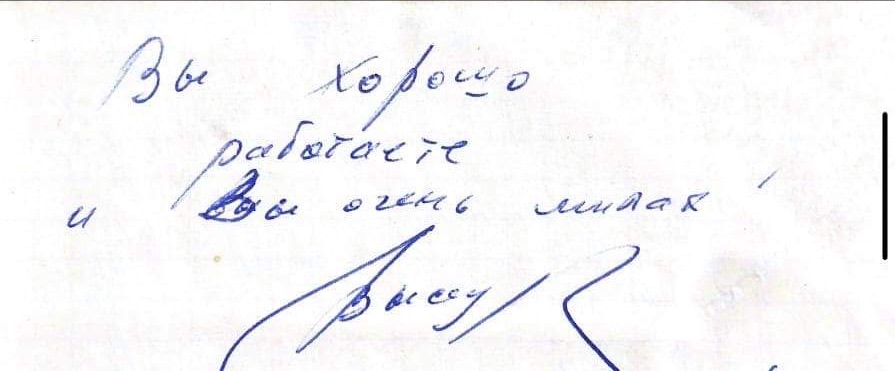 Вы хорошо
работаете
и Вы очень милая!